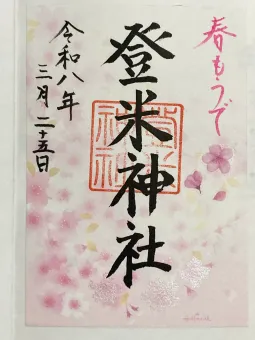 春もうで
登米神社
令和八年
三月二十五日